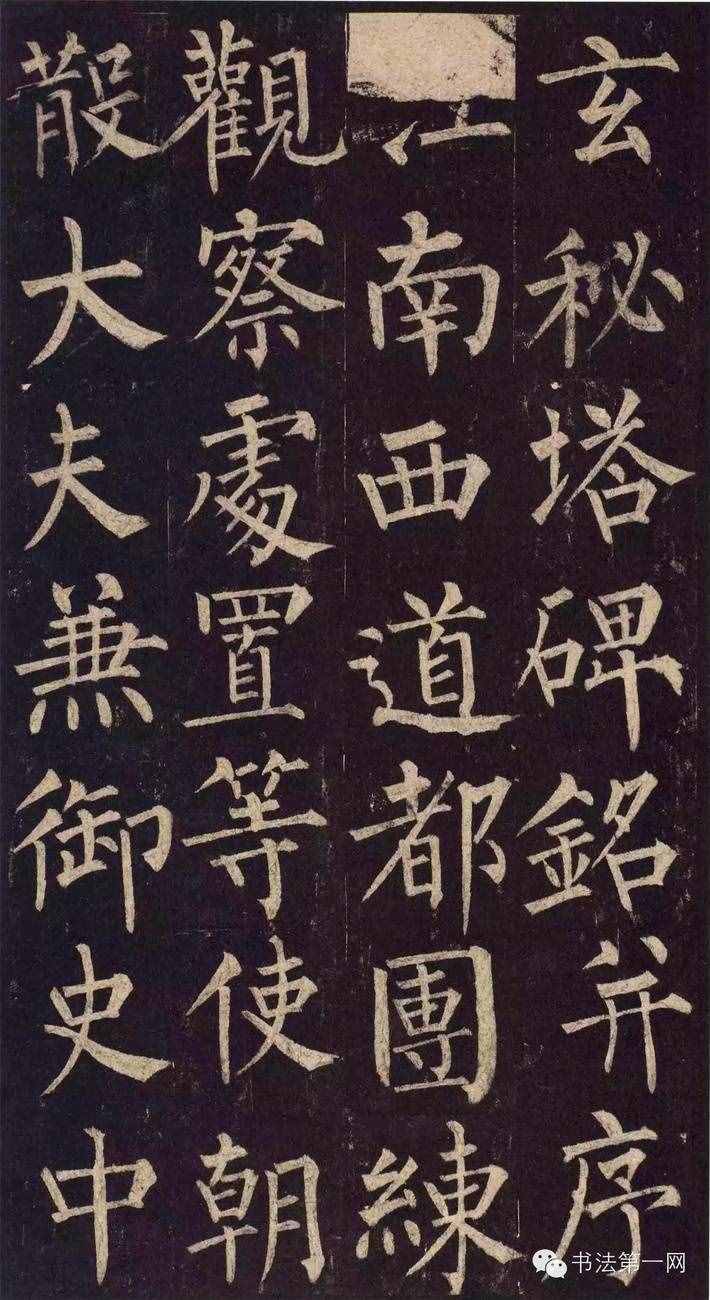 玄秘塔碑銘并序
江南西道都團練
觀察處置等使朝
散大夫兼御史中
书法第一网